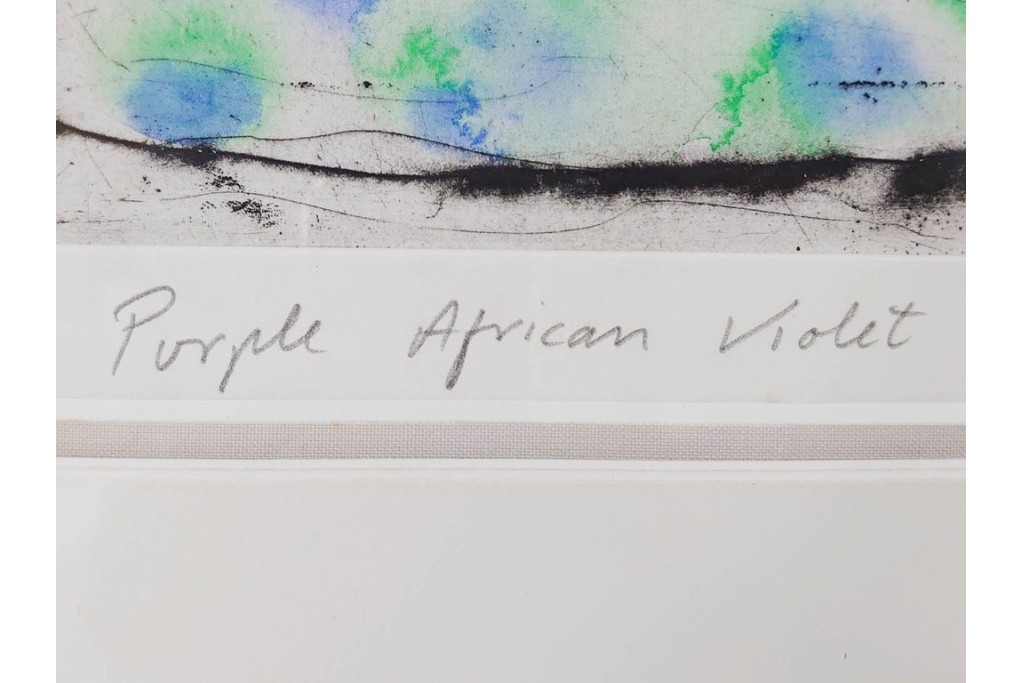 Purple African Violet